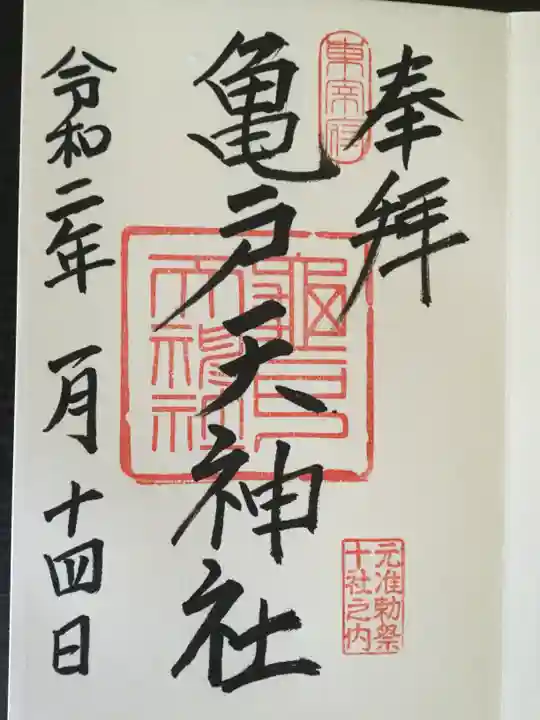 奉拝
東宰府
亀戸天神社
亀戸天神社
元准勅祭
十社之内
令和二年 一月十四日